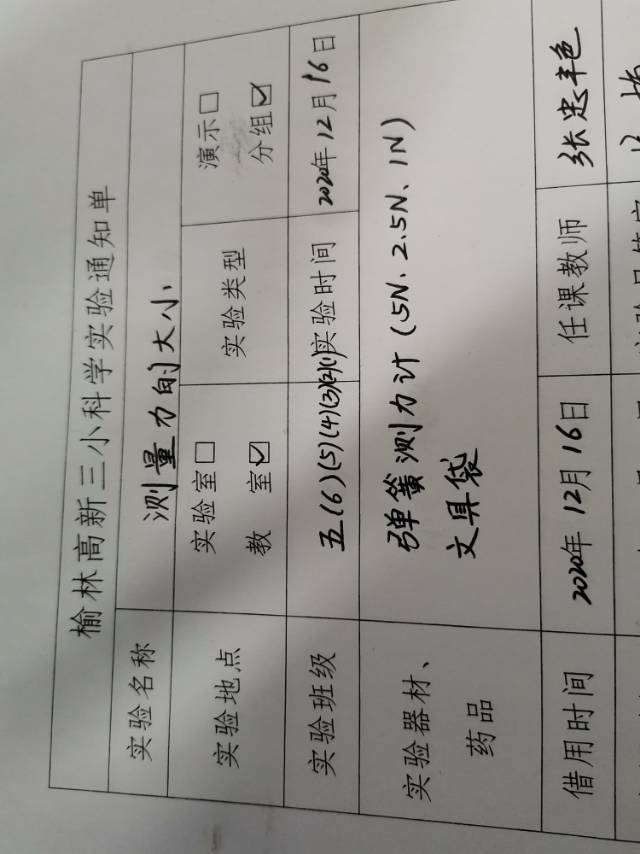 榆林高新三小科学实验通知单
实验名称 测量力的大小
实验地点 实验室□ 实验类型 演示□
教 室☑ 分组☑
实验班级 五(6)(5)(4)(3)(2)(1) 实验时间 2020年12月16日
实验器材、 弹簧测力计(5N、2.5N、1N)
药品 文具袋
借用时间 2020年12月16日 任课教师